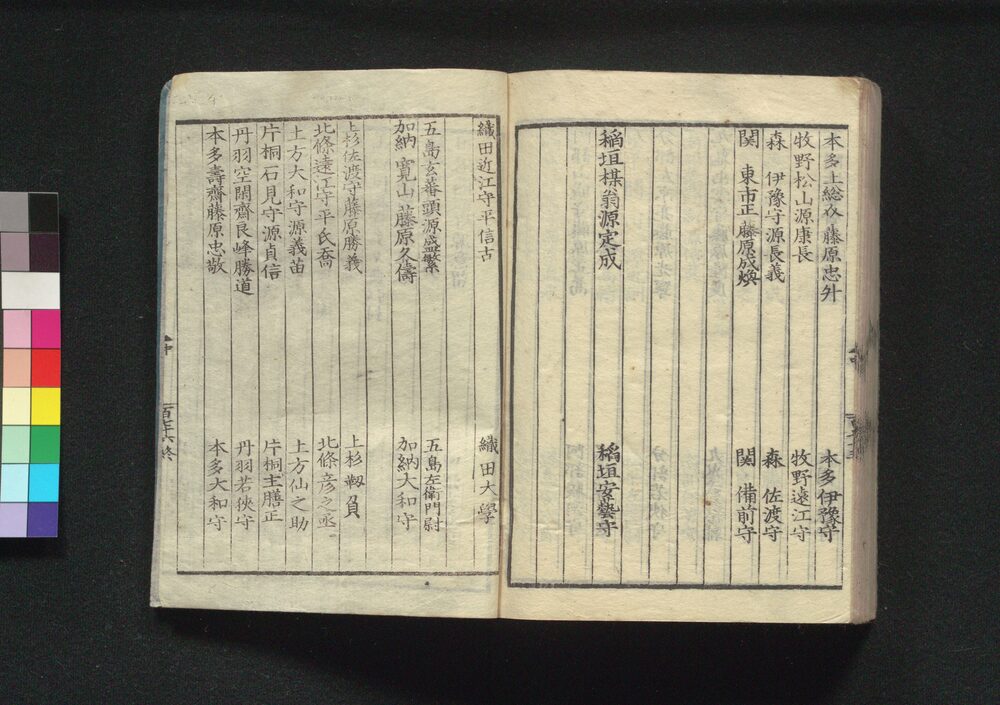 本多上総介藤原忠升 本多伊豫守
牧野松山源康長 牧野遠江守
森 伊豫守源長義 森 佐渡守
関 東市正藤原成煥 関 備前守
稲垣棋翁源定成 稲垣安藝守
織田近江守平信古 織田大學
五島玄蕃頭源盛繁 五島左衛門尉
加納寛山藤原久儔 加納大和守
上杉佐渡守藤原勝義 上杉靱負
北條遠江守平氏喬 北條彦之丞
土方大和守源義苗 土方仙之助
片桐石見守源貞信 片桐主膳正
丹羽空閑齋良峰勝道 丹羽若狹守
本多壽齋藤原忠敬 本多大和守